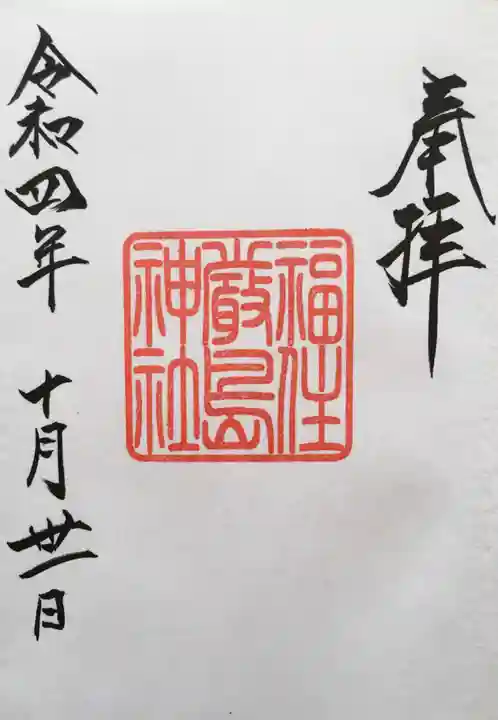 奉拝
福住
厳島
神社
令和四年 十月 丗一日